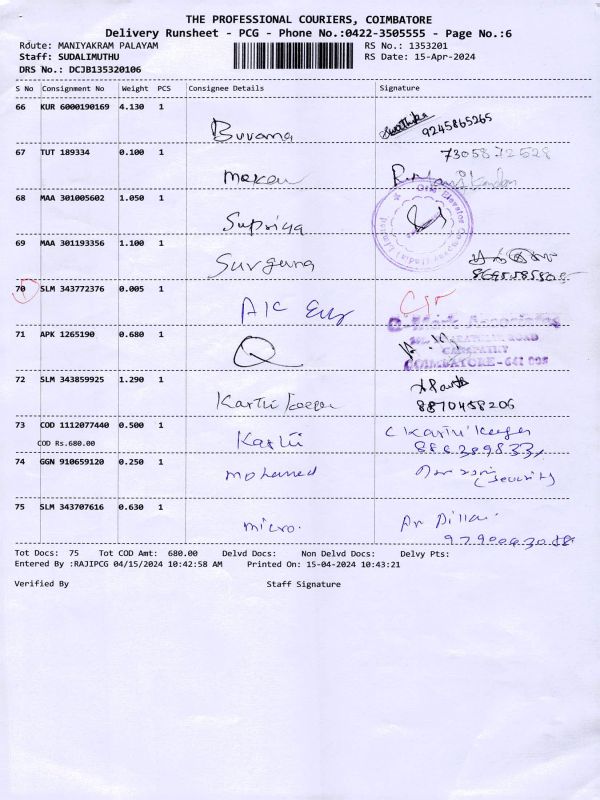 THE PROFESSIONAL COURIERS, COIMBATORE
Delivery Runsheet - PCG - Phone No.:0422-3505555 - Page No.:6
Route: MANIYAKRAM PALAYAM RS No.: 1353201
Staff: SUDALIMUTHU RS Date: 15-Apr-2024
DRS No.: DCJB135320106
S No Consignment No Weight PCS Consignee Details Signature
66 KUR 6000190169 4.130 1
Buvana Swathika 9245865265
67 TUT 189334 0.100 1 7305872528
68 MAA 301005602 1.050 1
Supriya
69 MAA 301193356 1.100 1
Surguna
70 SLM 343772376 0.005 1
A/C
71 APK 1265190 0.680 1
G-Mark Associates
COIMBATORE - 641 006
72 SLM 343859925 1.290 1
Karthi 8870458206
73 COD 1112077440 0.500 1
COD Rs.680.00 Karthi
74 GGN 910659120 0.250 1
Mohamed (Security)
75 SLM 343707616 0.630 1
micro.
Tot Docs: 75 Tot COD Amt: 680.00 Delvd Docs: Non Delvd Docs: Delvy Pts:
Entered By :RAJIPCG 04/15/2024 10:42:58 AM Printed On: 15-04-2024 10:43:21
Verified By Staff Signature